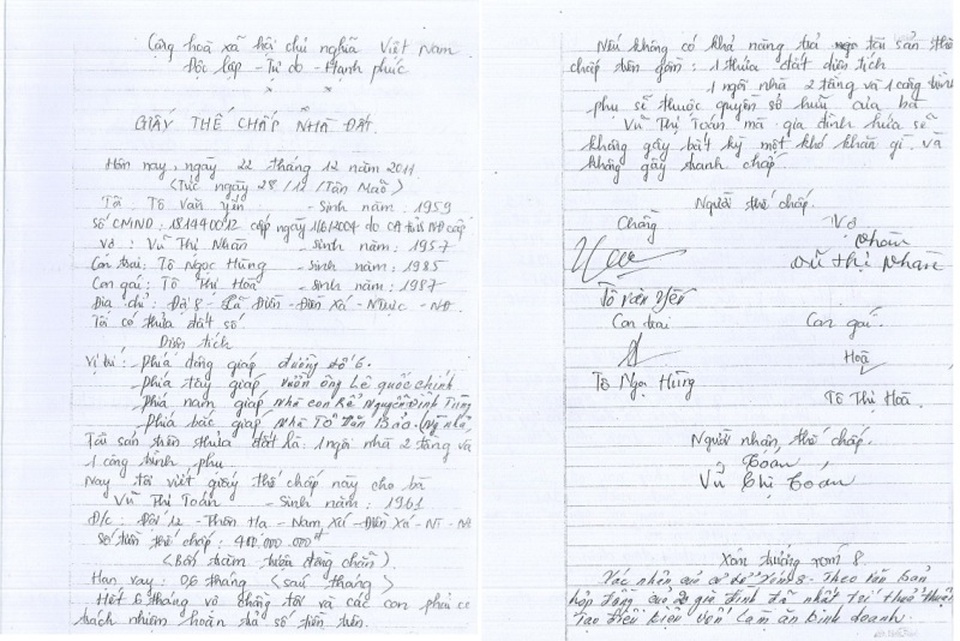 Cộng hoà xã hội chủ nghĩa Việt Nam
Độc lập - Tự do - Hạnh phúc
GIẤY THẾ CHẤP NHÀ ĐẤT.
Hôm nay, ngày 22 tháng 12 năm 2011
(Tức ngày 28/11/Tân Mão)
Tôi: Tô Văn Yên - Sinh năm: 1959
Số CMND: 181440012 cấp ngày 1/6/2004 do CA tỉnh NĐ cấp
Vợ: Vũ Thị Nhàn - Sinh năm: 1957
Con trai: Tô Ngọc Hùng - Sinh năm: 1985
Con gái: Tô Thị Hoà - Sinh năm: 1987
Địa chỉ: Đội 8 - Điền Xá - NĐ.
Tôi có thửa đất số
Diện tích
Vị trí: - Phía đông giáp đường số 6.
- Phía tây giáp vườn ông Lê quốc chính
- Phía nam giáp nhà con Rể Nguyễn Đình Tùng
- Phía bắc giáp nhà Tô Bảo.
Tài sản trên thửa đất là: 1 ngôi nhà 2 tầng và
1 công trình phụ
Nay tôi viết giấy thế chấp này cho bà
Vũ Thị Toán - Sinh năm: 1961
Đ/c: Đội 12 - Thôn Hạ - Nam Xá - Điền Xá - NT - NĐ
Số tiền thế chấp: 400.000.000đ
(Bốn trăm triệu đồng chẵn).
Hạn vay: 06 tháng (sáu tháng)
Hết 6 tháng vợ chồng tôi và các con phải có
trách nhiệm hoàn trả số tiền trên.
Nếu không có khả năng trả tài sản thế
chấp trên gồm: 1 thửa đất diện tích
1 ngôi nhà 2 tầng và 1 công trình
phụ sẽ thuộc quyền sở hữu của bà
Vũ Thị Toán mà gia đình hứa sẽ
không gây bất kỳ một khó khăn gì và
không gây tranh chấp.
Người thế chấp.
Chồng Vợ
Nhàn
Vũ Thị Nhàn
Tô Văn Yên
Con trai Con gái.
Hoà
Tô Ngọc Hùng Tô Thị Hoà.
Người nhận thế chấp.
Toán
Vũ Thị Toán
Xóm trưởng xóm 8
Xác nhận của cơ sở xóm 8. Theo văn bản
hợp đồng của 2 gia đình đã nhất trí thoả thuận
Tạo điều kiện vốn làm ăn kinh doanh.